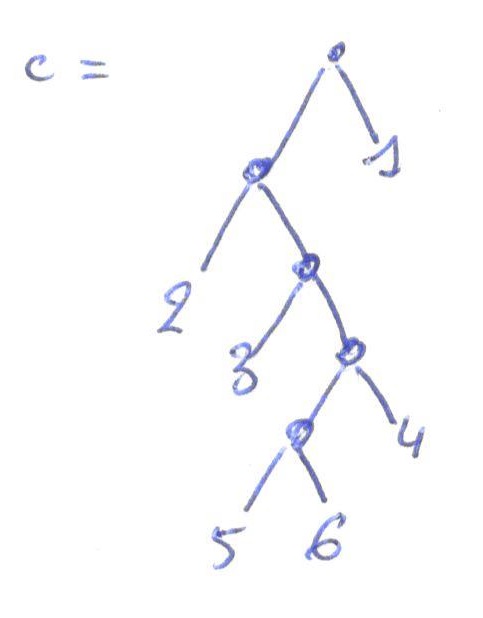 c =
1
2
3
4
5 6